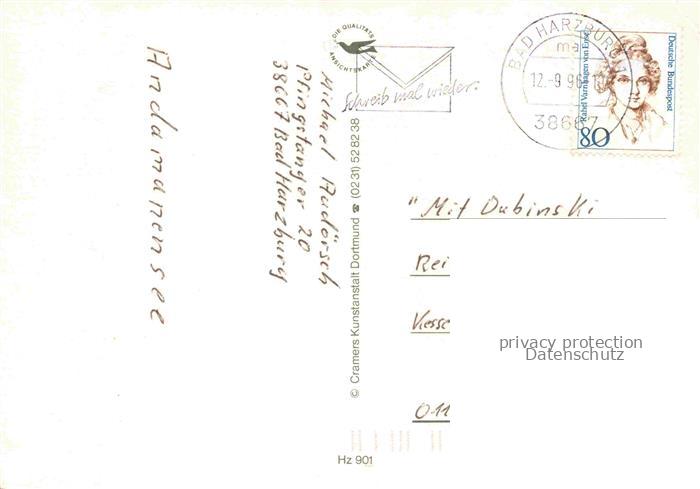 Andamanensee
Michael Audörsch
Pfingstanger 20
38667 Bad Harzburg
DIE QUALITÄTS
ANSICHTSKARTE
Schreib mal wieder.
BAD HARZBURG 1
12.-9.96
38667
Deutsche Bundespost
Rahel Varnhagen von Ense
80
© Cramers Kunstanstalt Dortmund ☎ (0231) 528238
"Mit Dubinski
Rei
Kesse
011
privacy protection
Datenschutz
Hz 901